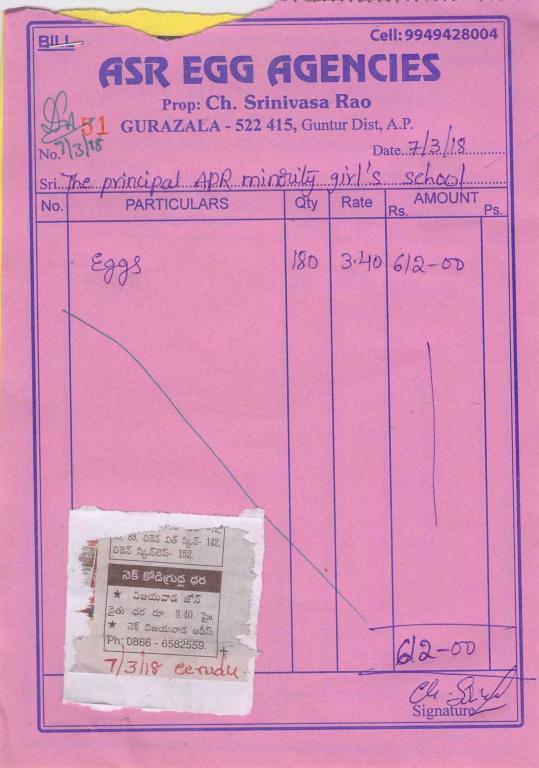 BILL
Cell: 9949428004
ASR EGG AGENCIES
Prop: Ch. Srinivasa Rao
GURAZALA - 522 415, Guntur Dist, A.P.
No. 51
7/3/18
Date 7/3/18
Sri The principal APR minority girl's school
No. PARTICULARS Qty Rate AMOUNT
Rs. Ps.
Eggs 180 3.40 612-00
89, చికెన్ విత్ స్కిన్- 142,
చికెన్ స్కిన్‌లెస్- 152.
నెక్ కోడిగ్రుడ్ల ధర
★ విజయవాడ జోన్
రైతు ధర రూ. 3.40 పై॥
★ నెక్ విజయవాడ ఆఫీస్
Ph: 0866 - 6582559.
7/3/18 eenadu
612-00
Signature